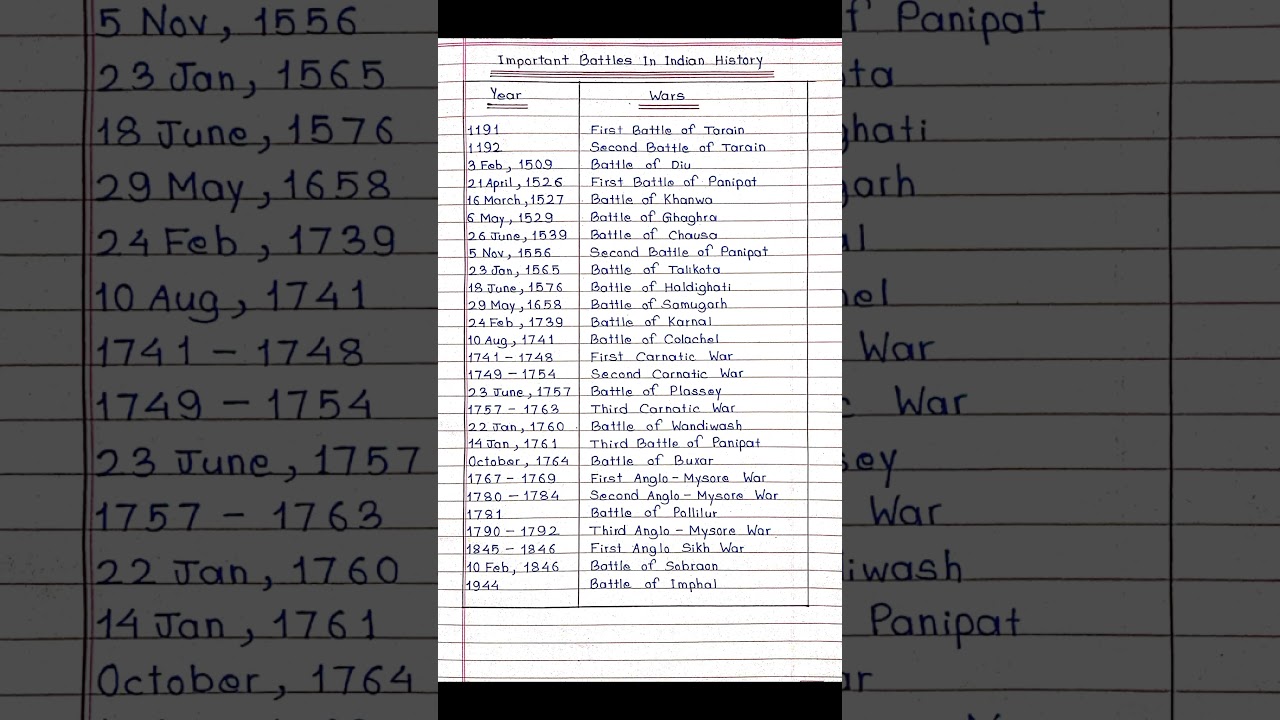 5 Nov, 1556
23 Jan, 1565
18 June, 1576
29 May, 1658
24 Feb, 1739
10 Aug, 1741
1741 - 1748
1749 - 1754
23 June, 1757
1757 - 1763
22 Jan, 1760
14 Jan, 1761
October, 1764
Important Battles In Indian History
Year Wars
1191 First Battle of Tarain
1192 Second Battle of Tarain
3 Feb, 1509 Battle of Diu
21 April, 1526 First Battle of Panipat
16 March, 1527 Battle of Khanwa
6 May, 1529 Battle of Ghaghra
26 June, 1539 Battle of Chausa
5 Nov, 1556 Second Battle of Panipat
23 Jan, 1565 Battle of Talikota
18 June, 1576 Battle of Haldighati
29 May, 1658 Battle of Samugarh
24 Feb, 1739 Battle of Karnal
10 Aug, 1741 Battle of Colachel
1741 - 1748 First Carnatic War
1749 - 1754 Second Carnatic War
23 June, 1757 Battle of Plassey
1757 - 1763 Third Carnatic War
22 Jan, 1760 Battle of Wandiwash
14 Jan, 1761 Third Battle of Panipat
October, 1764 Battle of Buxar
1767 - 1769 First Anglo - Mysore War
1780 - 1784 Second Anglo - Mysore War
1781 Battle of Pollilur
1790 - 1792 Third Anglo - Mysore War
1845 - 1846 First Anglo Sikh War
10 Feb, 1846 Battle of Sobraon
1944 Battle of Imphal
f Panipat
ta
hati
arh
l
el
War
War
ey
War
iwash
Panipat
ar